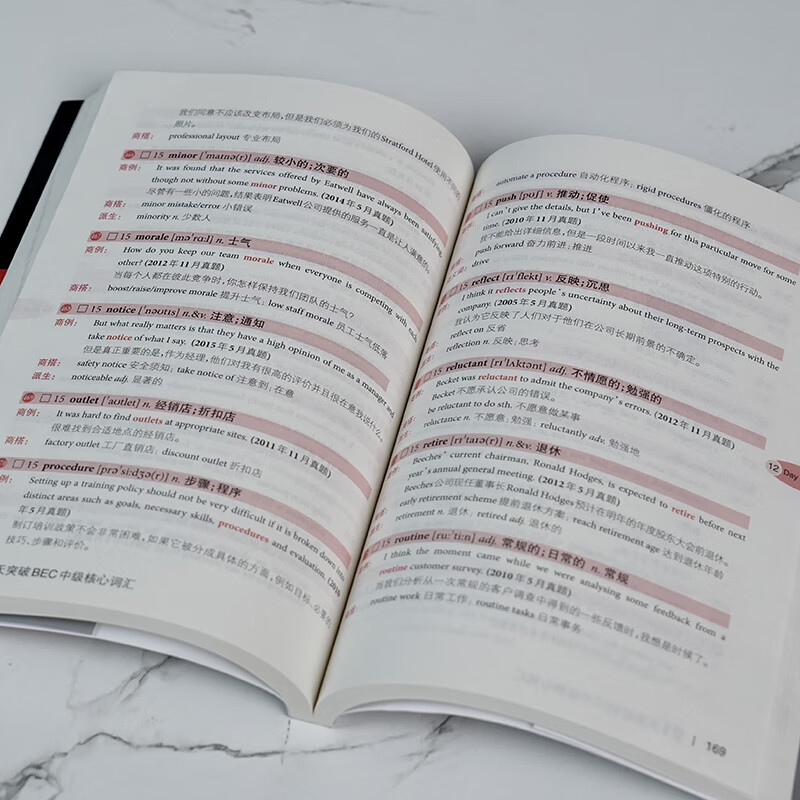 我们同意不应该改变布局,但是我们必须为我们的Stratford Hotel使用不同的
照片。
商搭: professional layout 专业布局
15 minor ['maɪnə(r)] adj. 较小的;次要的
商例: It was found that the services offered by Eatwell have always been satisfying,
though not without some minor problems. (2014年5月真题)
尽管有一些小的问题,结果表明Eatwell公司提供的服务一直是让人满意的。
商搭: minor mistake/error 小错误
派生: minority n. 少数人
15 morale [mə'rɑːl] n. 士气
商例: How do you keep our team morale when everyone is competing with each
other? (2012年11月真题)
当每个人都在彼此竞争时,你怎样保持我们团队的士气?
商搭: boost/raise/improve morale 提升士气; low staff morale 员工士气低落
15 notice ['nəʊtɪs] n.&v. 注意;通知
商例: But what really matters is that they have a high opinion of me as a manager and
take notice of what I say. (2015年5月真题)
但是真正重要的是,作为经理,他们对我有很高的评价并且很在意我说什么。
商搭: safety notice 安全须知; take notice of 注意到; 在意
派生: noticeable adj. 显著的
15 outlet ['aʊtlet] n. 经销店;折扣店
商例: It was hard to find outlets at appropriate sites. (2011年11月真题)
很难找到合适地点的经销店。
商搭: factory outlet 工厂直销店; discount outlet 折扣店
15 procedure [prə'siːdʒə(r)] n. 步骤;程序
例: Setting up a training policy should not be very difficult if it is broken down into
distinct areas such as goals, necessary skills, procedures and evaluation. (2010
年5月真题)
制订培训政策不会非常困难,如果它被分成具体的方面,例如目标、必要的
技巧、步骤和评价。
天突破BEC中级核心词汇
automate a procedure 自动化程序; rigid procedures 僵化的程序
15 push [pʊʃ] v. 推动;促使
I can't give the details, but I've been pushing for this particular move for some
time. (2010年11月真题)
我不能给出详细信息,但是一段时间以来我一直推动这项特别的行动。
push forward 奋力前进; 推进
drive
15 reflect [rɪ'flekt] v. 反映;沉思
I think it reflects people's uncertainty about their long-term prospects with the
company. (2005年5月真题)
我认为它反映了人们对于他们在公司长期前景的不确定。
reflect on 反省
reflection n. 反映; 思考
15 reluctant [rɪ'lʌktənt] adj. 不情愿的;勉强的
Becket was reluctant to admit the company's errors. (2012年11月真题)
Becket不愿承认公司的错误。
be reluctant to do sth. 不愿意做某事
reluctance n. 不愿意; 勉强; reluctantly adv. 勉强地
15 retire [rɪ'taɪə(r)] n.&v. 退休
Beeches' current chairman, Ronald Hodges, is expected to retire before next
year's annual general meeting. (2012年5月真题)
Beeches公司现任董事长Ronald Hodges预计在明年的年度股东大会前退休。
early retirement scheme 提前退休方案; reach retirement age 达到退休年龄
retirement n. 退休; retired adj. 退休的
15 routine [ruː'tiːn] adj. 常规的;日常的 n. 常规
I think the moment came while we were analysing some feedback from a
routine customer survey. (2010年5月真题)
当我们分析从一次常规的客户调查中得到的一些反馈时,我想是时候了。
routine work 日常工作; routine tasks 日常事务
12 Day
169